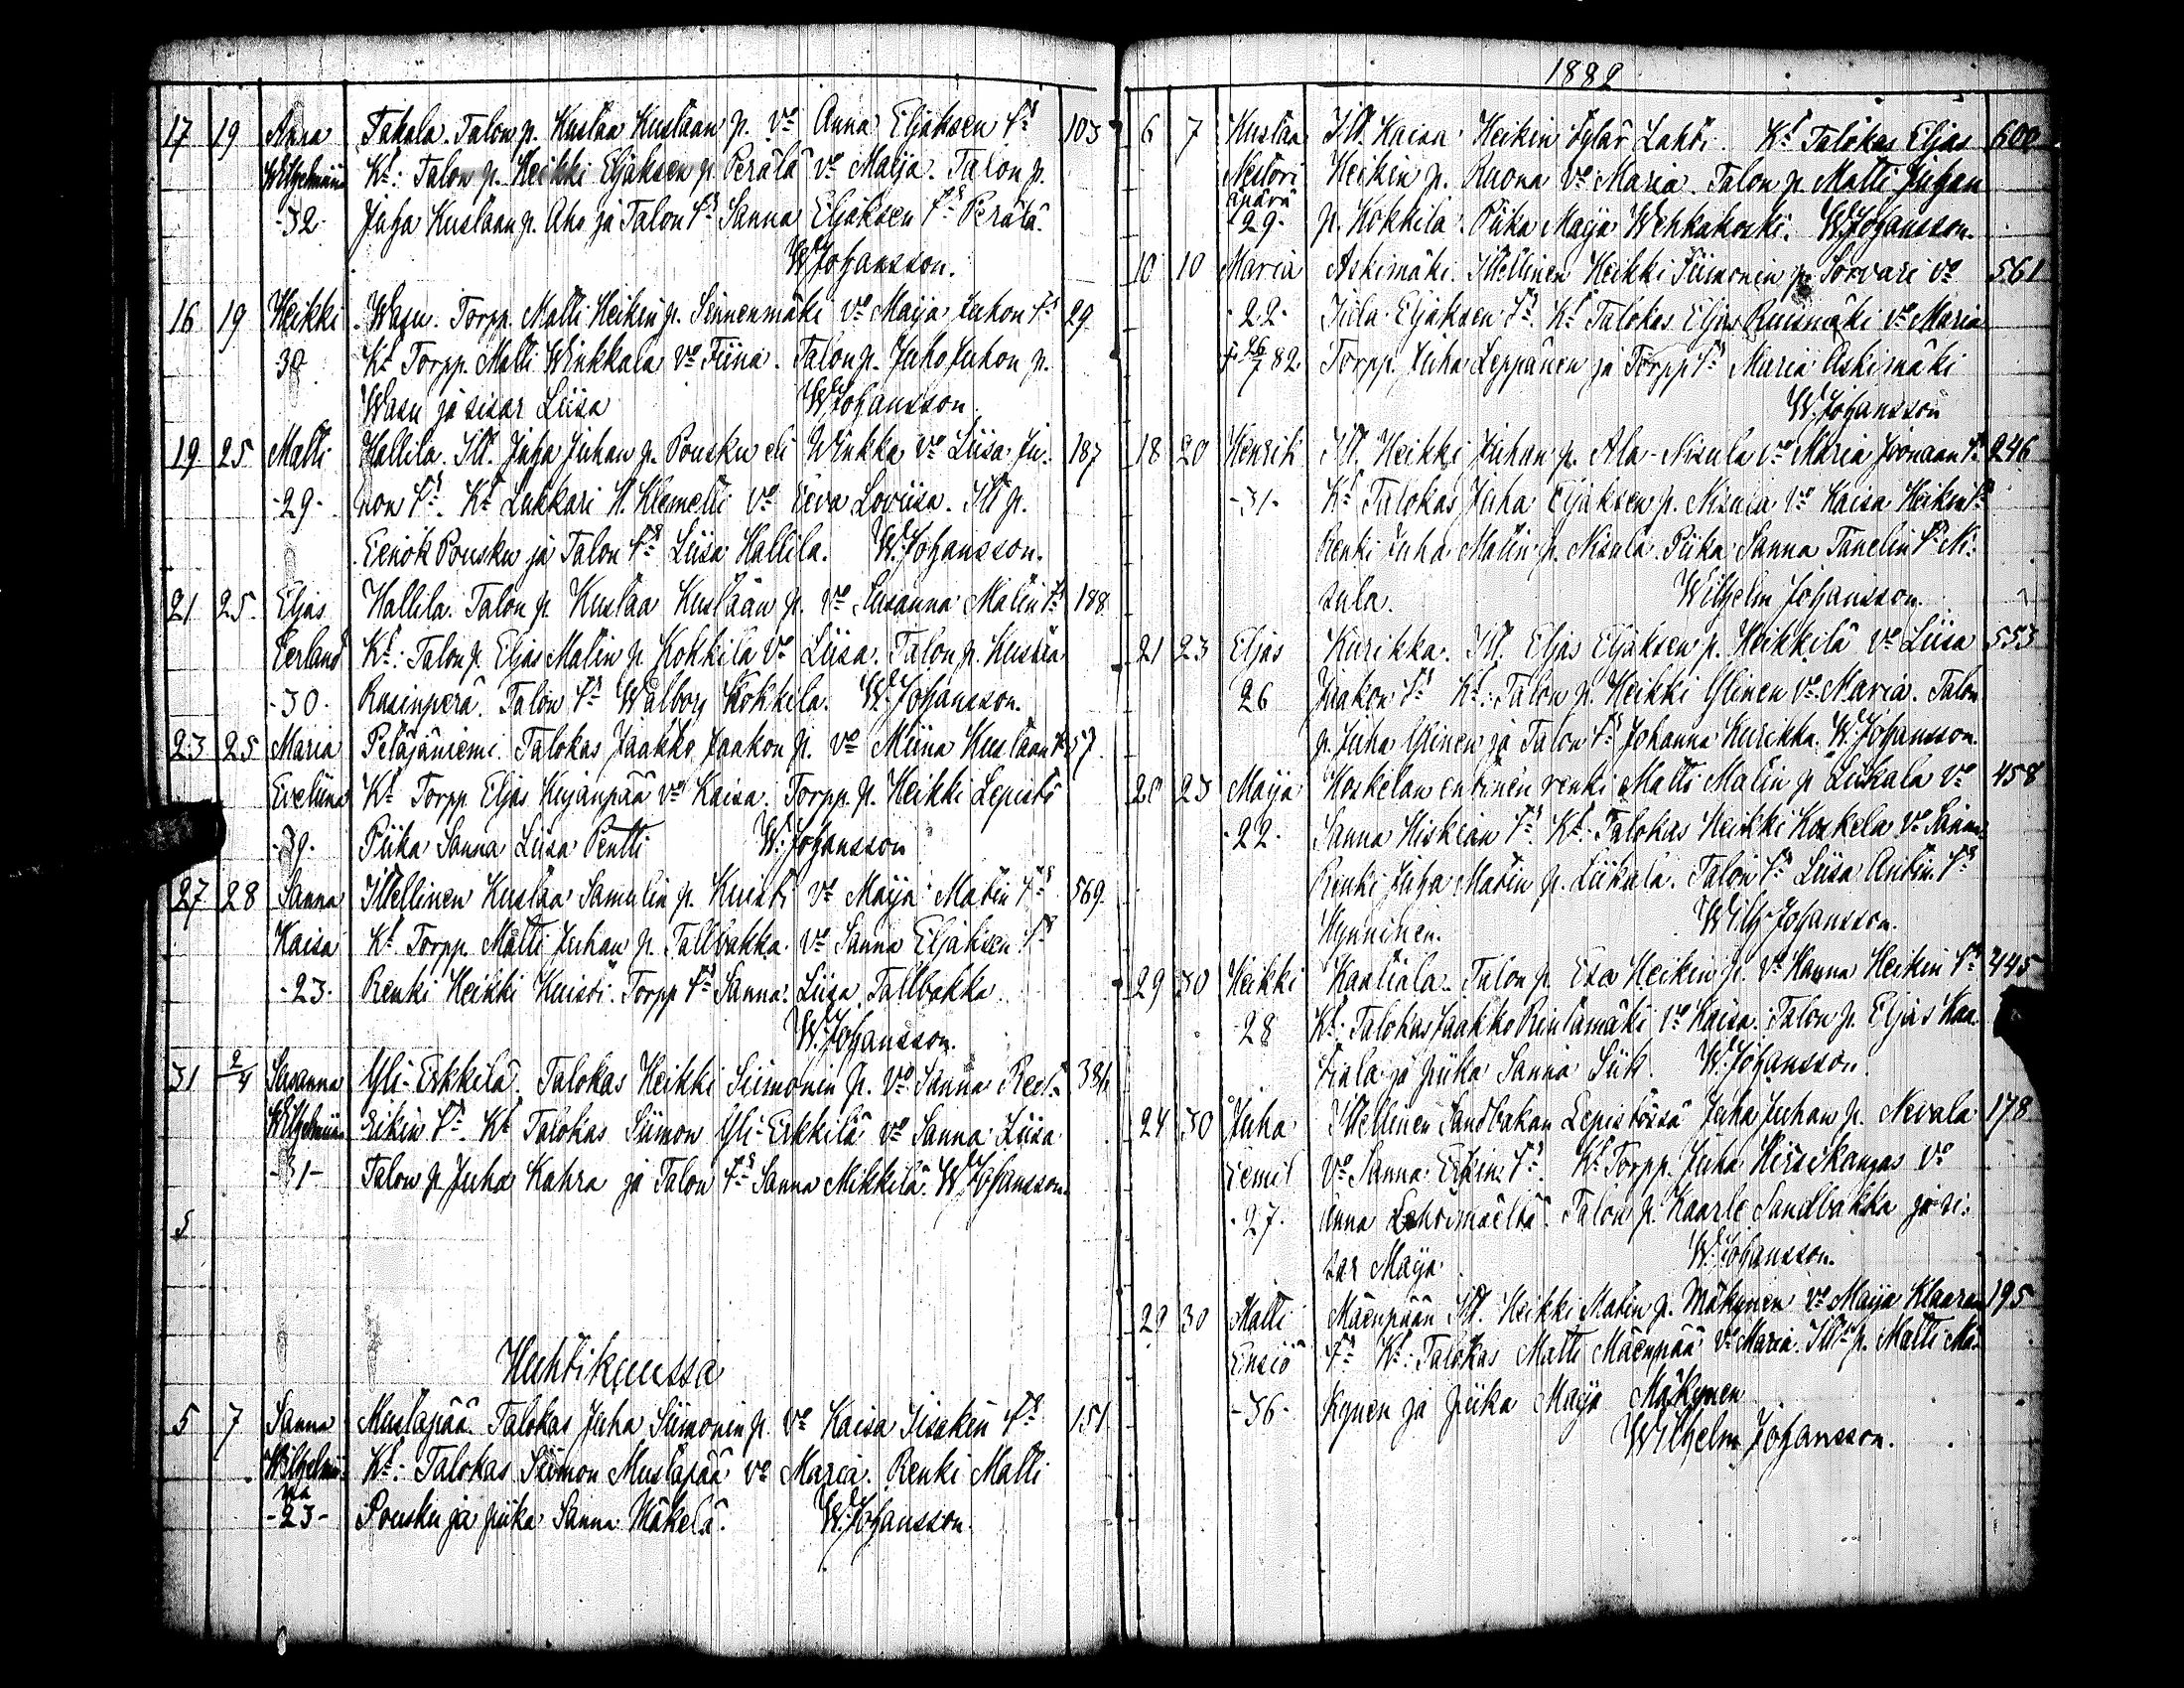 17 19 Anna Takala. Talon p. Kustaa Kustaan p. vo Anna Eljaksen tr 103
Wilhelmiina Kt: Talon p. Heikki Eljaksen p. Perälä vo Maija. Talon p.
-32- Juha Kustaan p. Aho ja Talon tr Sanna Eljaksen tr Perälä.
W. Johansson.
16 19 Heikki Wasu. Torpp. Matti Heikin p. Sinnenmäki vo Maija Juhon tr 29.
30 Kt Torpp. Matti Winkkala vo Tiina. Talon p. Juho Juhon p.
Wasu ja sisar Liisa W. Johansson.
19 25 Matti Hallila. Itl. Juha Juhan p. Pousku eli Winkka vo Liisa Ju- 187
-29- hon tr. Kt Lukkari H. Klemetti vo Eeva Loviisa. Itl p.
Eenok Pousku ja Talon tr Liisa Hallila. W. Johansson.
21 25. Eljas Hallila. Talon p. Kustaa Kustaan p. vo Susanna Matin tr 188.
Eerland Kt: Talon p. Eljas Matin p. Kokkila vo Liisa. Talon p. Kustaa
-30- Rusinperä. Talon tr Walborg Kokkila. W. Johansson.
23 25 Maria Petäjäniemi. Talokas Jaakko Jaakon p. vo Miina Kustaan tr 57.
Eveliina Kt Torpp. Eljas Kujanpää vo Kaisa. Torpp. p. Heikki Lepistö
-39- Piika Sanna Liisa Pentti W. Johansson
27 28 Sanna Itellinen Kustaa Samulin p. Kuisti vo Maija Matin tr 569.
Kaisa Kt Torpp. Matti Juhan p. Tallbakka vo Sanna Eljaksen tr
-23- Renki Heikki Kuisti. Torpp. tr Sanna Liisa Tallbakka.
W. Johansson.
31 2/4 Susanna Yli-Erkkilä. Talokas Heikki Siimonin p. vo Sanna 384
Wilhelmiina Erikin tr. Kt Talokas Siimon Yli-Erkkilä vo Sanna Liisa
-31- Talon p. Juha Kahra ja Talon tr Sanna Mikkilä. W. Johansson.
5
Huhtikuussa
5 7 Sanna Mustapää. Talokas Juha Siimonin p. vo Kaisa Iisakin tr 151.
Wilhelmii- Kt: Talokas Siimon Mustapää vo Maria. Renki Matti
na
-23- Pousku ja piika Sanna Mäkelä. W. Johansson.
1882
6 7 Kustaa Itl. Kaisa Heikin tytär Lahti. Kt Talokas Eljas 600
Nestori Heikin p. Ruona vo Maria. Talon p. Matti Juhan
äpärä
-29- p. Kokkila. Piika Maija Wehkakoski. W. Johansson.
10 10 Maria Askimäki. Itellinen Heikki Siimonin p. Sorvari vo 561
-22- Tiila Eljaksen tr. Kt Talokas Eljas Ruismäki vo Maria
† 26/7 82. Torpp. Juha Leppänen ja Torpp tr Maria Askimäki
W. Johansson
18 20 Henrik Itl. Heikki Juhan p. Ala-Nisula vo Maria Joonaan tr 246
-31- Kt Talokas Juha Eljaksen p. Nisula vo Kaisa Heikin tr
Renki Juha Matin p. Nisula. Piika Sanna Tanelin tr Ni-
sula. Wilhelm Johansson.
21 23 Eljas Kurikka. Itl. Eljas Eljaksen p. Heikkilä vo Liisa 553
26 Jaakon tr Kt: Talon p. Heikki Ylinen vo Maria. Talon
p. Juha Ylinen ja Talon tr Johanna Kurikka. W. Johansson.
20 23 Maija Koskelan entinen renki Matti Matin p. Liikala vo 458
-22- Sanna Hiskian tr. Kt: Talokas Heikki Koskela vo Sanna.
Renki Juha Matin p. Liikala. Talon tr Liisa Antin tr
Hynninen. Wilh. Johansson.
29 30 Heikki Kaatiala. Talon p. Esa Heikin p. vo Hanna Heikin tr 445
28 Kt: Talokas Jaakko Rintamäki vo Kaisa. Talon p. Eljas Kaa-
tiala ja piika Sanna Siik. W. Johansson.
24 30 Juha Itellinen Sandbakan Lepistössä Juha Juhan p. Nevala 178
Eemil vo Sanna Erkin tr. Kt Torpp. Juha Hirsikangas vo
-27- Anna Lehtimäeltä. Talon p. Kaarle Sandbakka ja si-
sar Maija. W. Johansson.
29 30 Matti Mäenpään Itl. Heikki Matin p. Mäkynen vo Maija Klaaran 195
Ensiö tr Kt: Talokas Matti Mäenpää vo Maria. Itl p. Matti Mä-
-36- kynen ja piika Maija Mäkynen
Wilhelm Johansson.